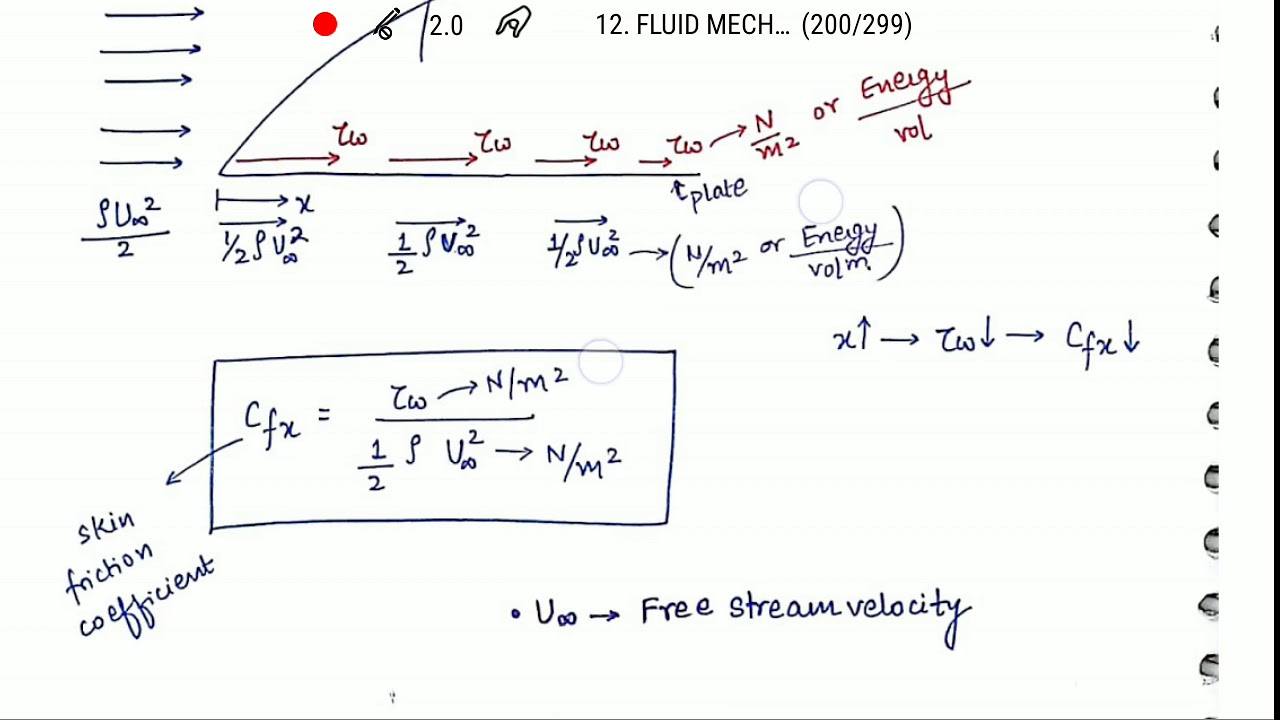 2.0 12. FLUID MECH... (200/299)
τω τω τω τω → N/m² or Energy/vol
plate
x
ρU∞²/2 1/2 ρU∞² 1/2 ρU∞² 1/2 ρU∞² → (N/m² or Energy/volm.)
x↑ → τω↓ → Cfx↓
Cfx = τω → N/m² / 1/2 ρ U∞² → N/m²
skin
friction
coefficient
• U∞ → Free stream velocity